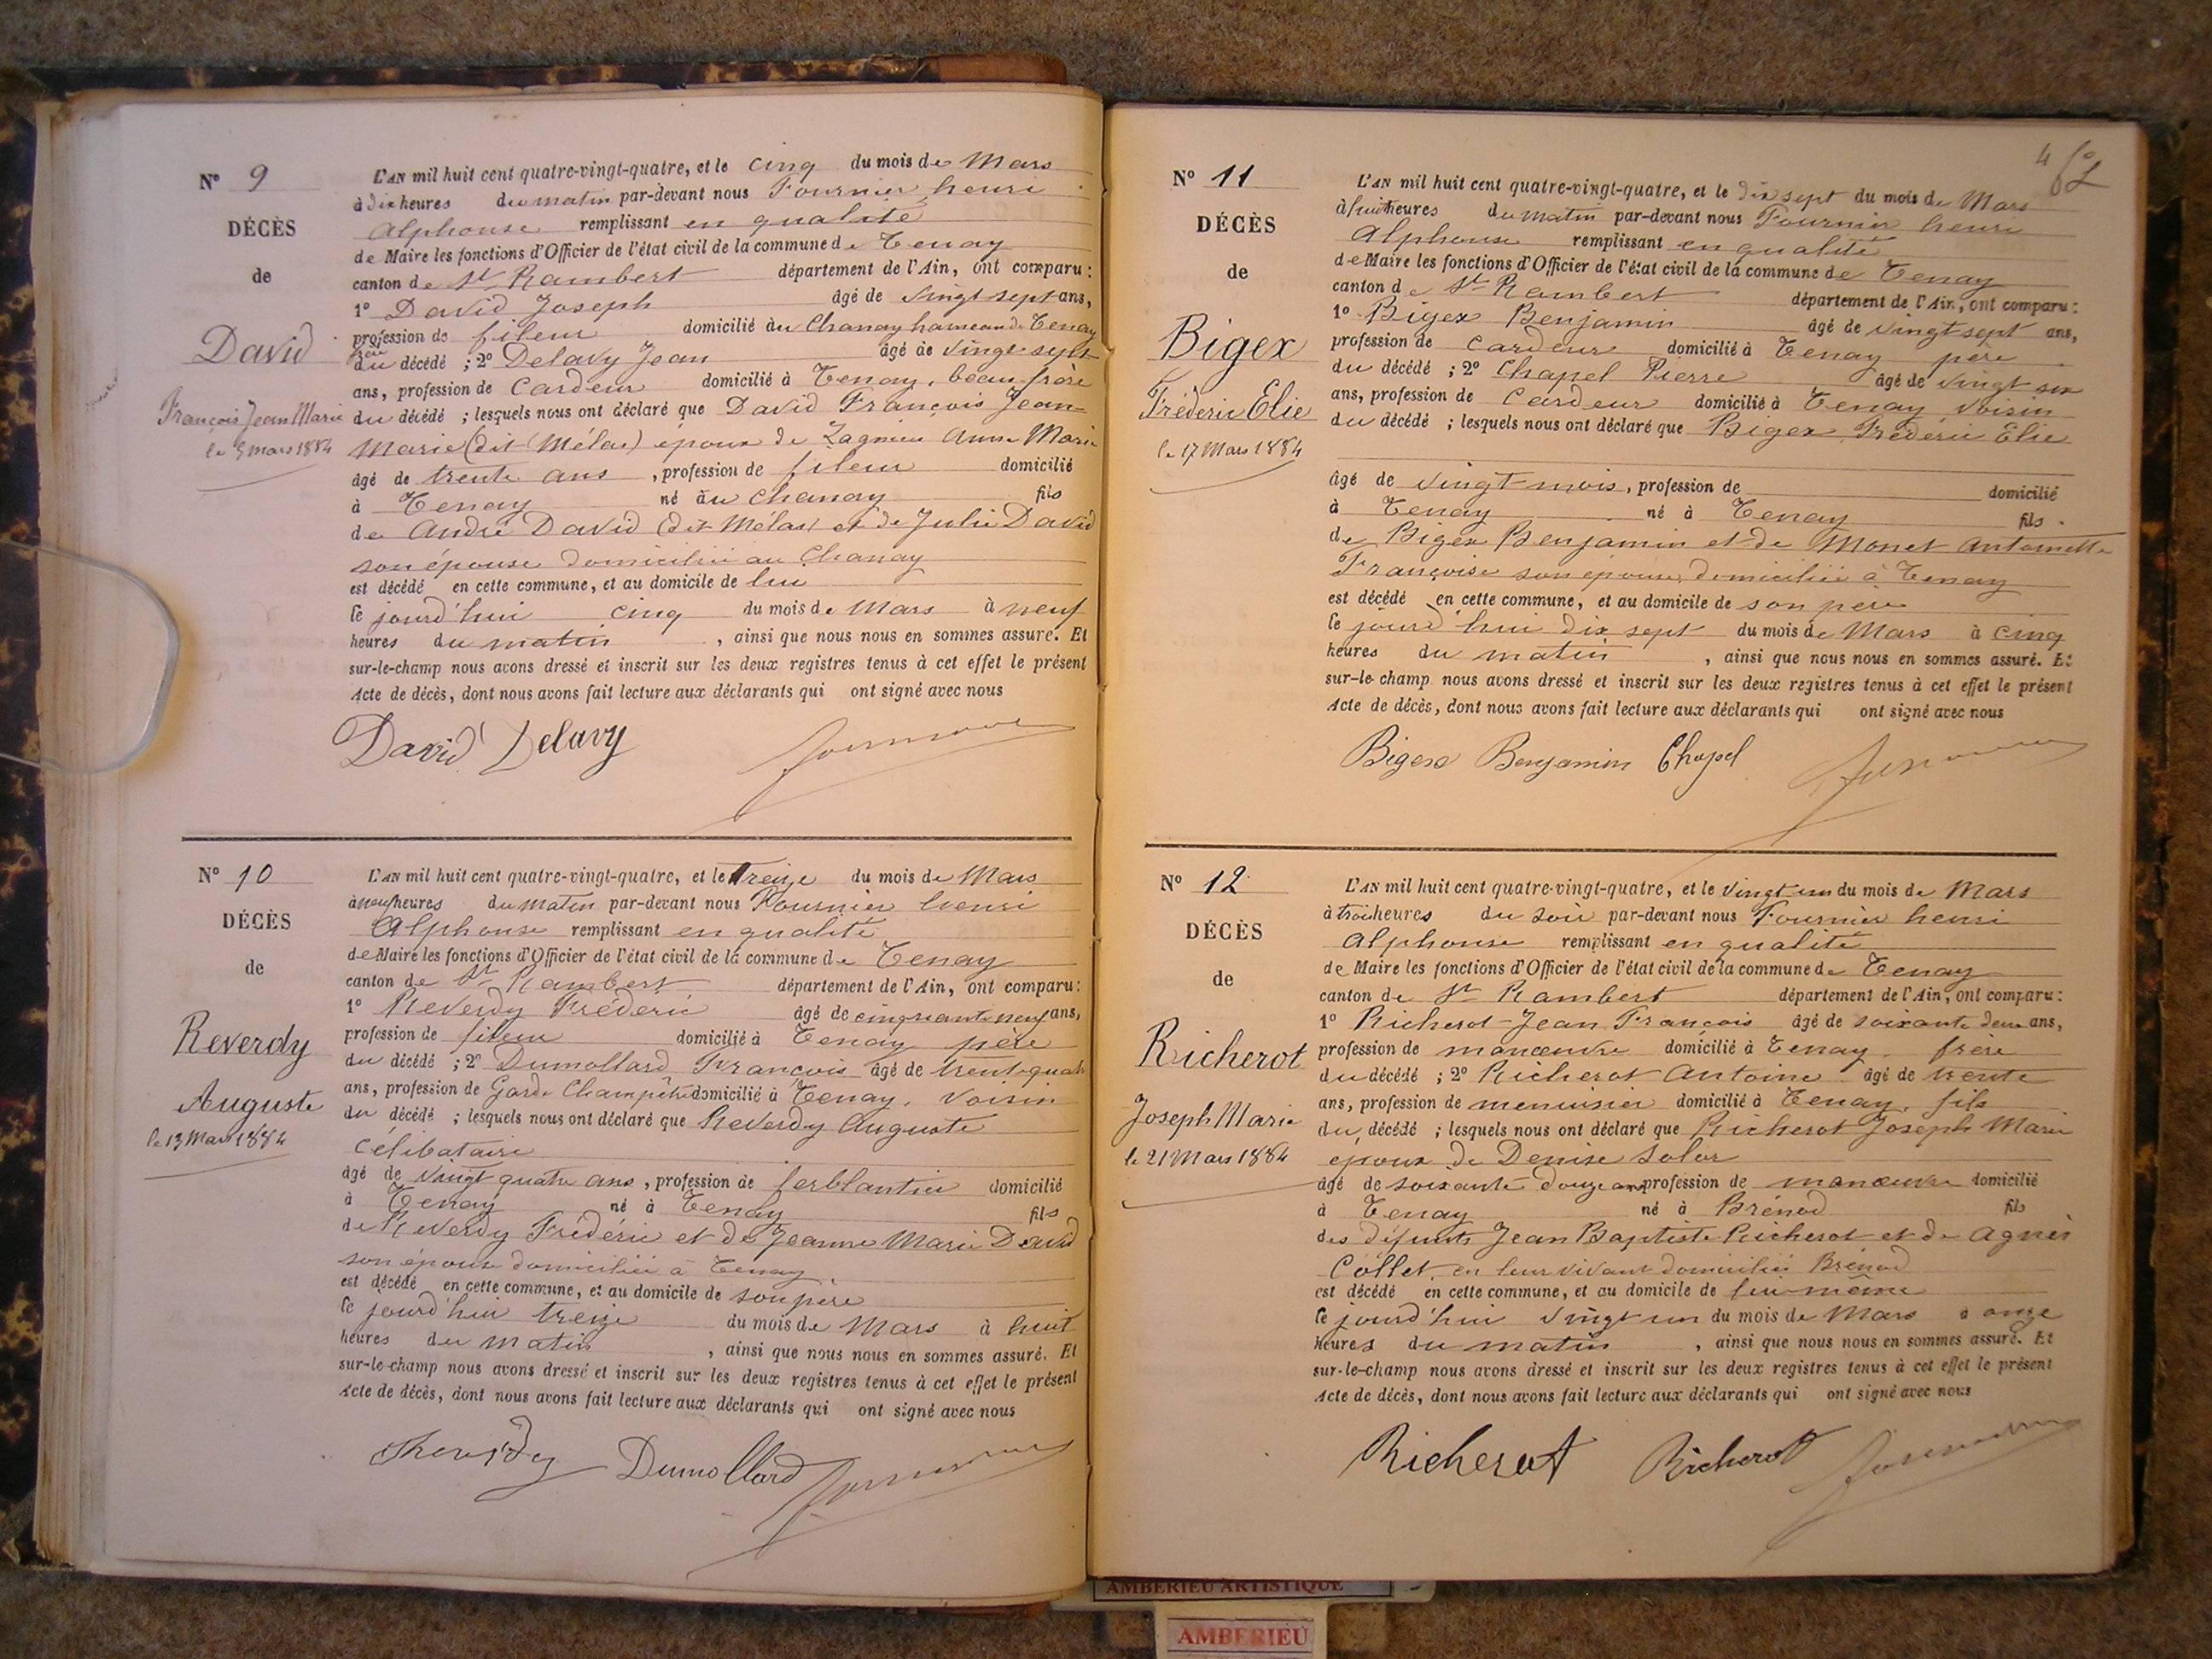 Nº 9
DÉCÈS
de
David
François Jean Marie
le 5 mars 1884
L'AN mil huit cent quatre-vingt-quatre, et le cinq du mois de Mars
à dix heures du matin par-devant nous Fournier henri
Alphonse remplissant en qualité
de Maire les fonctions d'Officier de l'état civil de la commune de Tenay
canton de St Rambert département de l'Ain, ont comparu:
1º David Joseph âgé de vingt sept ans,
profession de fileur domicilié au Chanay hameau de Tenay
frère du décédé ; 2º Delavy Jean âgé de vingt sept
ans, profession de Cardeur domicilié à Tenay, beau frère
du décédé ; lesquels nous ont déclaré que David François Jean-
Marie (dit Mélas) époux de Zagnieu Anne Marie
âgé de trente ans, profession de fileur domicilié
à Tenay né au Chanay fils
de André David (dit Mélas) et de Julie David
son épouse domiciliée au Chanay
est décédé en cette commune, et au domicile de lui
le jourd'hui cinq du mois de Mars à neuf
heures du matin, ainsi que nous nous en sommes assuré. Et
sur-le-champ nous avons dressé et inscrit sur les deux registres tenus à cet effet le présent
Acte de décès, dont nous avons fait lecture aux déclarants qui ont signé avec nous
David Delavy
Nº 10
DÉCÈS
de
Reverdy
Auguste
le 13 Mars 1884
L'AN mil huit cent quatre-vingt-quatre, et le treize du mois de Mars
à neuf heures du matin par-devant nous Fournier henri
Alphonse remplissant en qualité
de Maire les fonctions d'Officier de l'état civil de la commune de Tenay
canton de St Rambert département de l'Ain, ont comparu:
1º Reverdy Frédéric âgé de cinquante neuf ans,
profession de fileur domicilié à Tenay père
du décédé ; 2º Dumollard François âgé de trente quatre
ans, profession de Garde Champêtre domicilié à Tenay, voisin
du décédé ; lesquels nous ont déclaré que Reverdy Auguste
célibataire
âgé de vingt quatre ans, profession de ferblantier domicilié
à Tenay né à Tenay fils
de Reverdy Frédéric et de Jeanne Marie David
son épouse domiciliée à Tenay
est décédé en cette commune, et au domicile de son père
le jourd'hui treize du mois de Mars à huit
heures du matin, ainsi que nous nous en sommes assuré. Et
sur-le-champ nous avons dressé et inscrit sur les deux registres tenus à cet effet le présent
Acte de décès, dont nous avons fait lecture aux déclarants qui ont signé avec nous
Dumollard
4
Nº 11
DÉCÈS
de
Bigex
Fréderic Elie
le 17 Mars 1884
L'AN mil huit cent quatre-vingt-quatre, et le dix sept du mois de Mars
à huit heures du matin par-devant nous Fournier henri
Alphonse remplissant en qualité
de Maire les fonctions d'Officier de l'état civil de la commune de Tenay
canton de St Rambert département de l'Ain, ont comparu:
1º Bigex Benjamin âgé de vingt sept ans,
profession de Cardeur domicilié à Tenay père
du décédé ; 2º Chapel Pierre âgé de vingt six
ans, profession de Cardeur domicilié à Tenay voisin
du décédé ; lesquels nous ont déclaré que Bigex Frédéric Elie
âgé de vingt mois, profession de domicilié
à Tenay né à Tenay fils
de Bigex Benjamin et de Monet Antoinette
Françoise son épouse, domiciliée à Tenay
est décédé en cette commune, et au domicile de son père
le jourd'hui dix sept du mois de Mars à cinq
heures du matin, ainsi que nous nous en sommes assuré. Et
sur-le-champ nous avons dressé et inscrit sur les deux registres tenus à cet effet le présent
Acte de décès, dont nous avons fait lecture aux déclarants qui ont signé avec nous
Bigex Benjamin Chapel
Nº 12
DÉCÈS
de
Richerot
Joseph Marie
le 21 Mars 1884
L'AN mil huit cent quatre-vingt-quatre, et le vingt un du mois de Mars
à trois heures du soir par-devant nous Fournier henri
Alphonse remplissant en qualité
de Maire les fonctions d'Officier de l'état civil de la commune de Tenay
canton de St Rambert département de l'Ain, ont comparu:
1º Richerot Jean François âgé de soixante deux ans,
profession de manœuvre domicilié à Tenay, frère
du décédé ; 2º Richerot Antoine âgé de trente
ans, profession de menuisier domicilié à Tenay, fils
du décédé ; lesquels nous ont déclaré que Richerot Joseph Marie
époux de Denise Soler
âgé de soixante douze ans profession de manœuvre domicilié
à Tenay né à Brénod fils
des défunts Jean Baptiste Richerot et de Agnès
Collet, en leur vivant domiciliés Brénod
est décédé en cette commune, et au domicile de lui même
le jourd'hui vingt un du mois de Mars à onze
heures du matin, ainsi que nous nous en sommes assuré. Et
sur-le-champ nous avons dressé et inscrit sur les deux registres tenus à cet effet le présent
Acte de décès, dont nous avons fait lecture aux déclarants qui ont signé avec nous
Richerot Richerot
AMBERIEU ARTISTIQUE
AMBERIEU